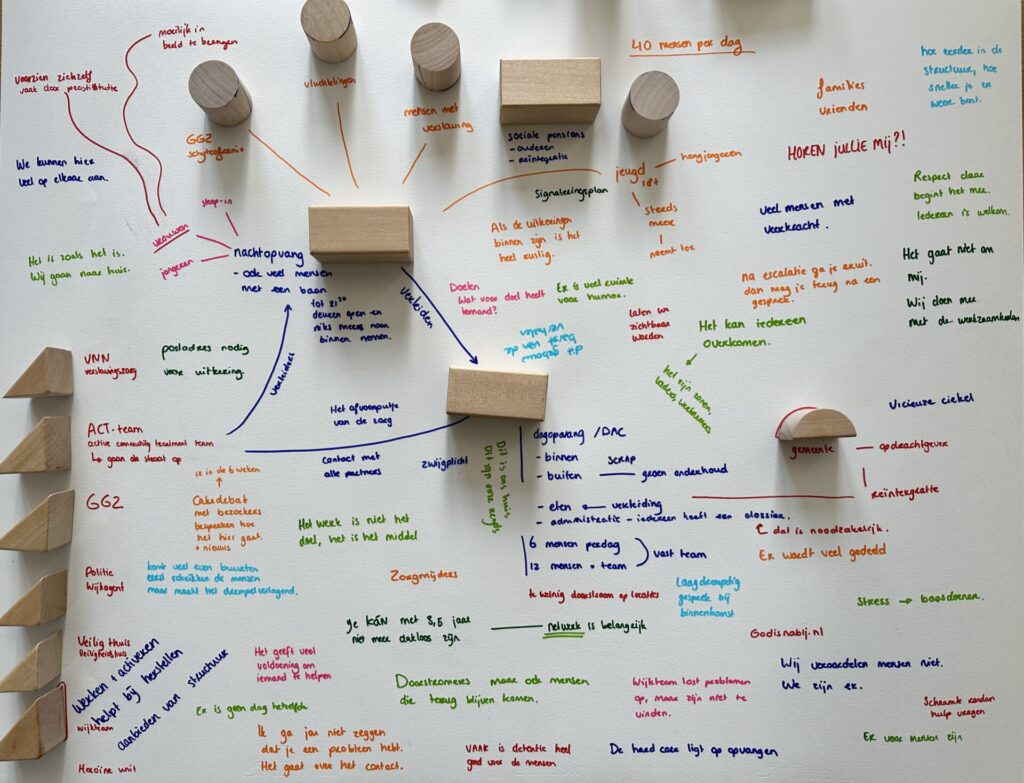 moeilijk in
beeld te brengen
voorzien zichzelf
vaak door prostitutie
We kunnen hier
veel op elkaar aan.
GGZ
schizofrenie
vluchtelingen
mensen met
verslaving
40 mensen per dag
sociale pensions
- ouderen
- reïntegratie
jeugd
18+
hangjongeren
steeds
meer
neemt toe
Signaleringsplan
families
vrienden
hoe eerder in de
structuur, hoe
sneller je er
weer bent.
HOREN JULLIE MIJ?!
Respect daar
begint het mee.
Iedereen is welkom.
veel mensen met
verkracht.
Het gaat niet om
mij.
Wij doen mee
met de werkzaamheden
na escalatie ga je eruit.
dan mag je terug na een
gesprek.
Als de uitkeringen
binnen zijn is het
heel rustig.
slaap-in
vrouwen
jongeren
Het is zoals het is.
Wij gaan naar huis.
nachtopvang
- ook veel mensen
met een baan
tot 21³⁰
deuren open en
niks meer naar
binnen nemen.
verleiden
Doelen
Wat voor doel heeft
iemand?
Er is veel ruimte
voor humor.
laten we
zichtbaar
worden
dit gebouw
barst van de
Het kan iedereen
overkomen.
het zijn zonen,
vaders, werknemers
VNN
verslavingszorg
postadres nodig
voor uitkering.
ACT-team
active community treatment team
↳ gaan de straat op
Het afvoerputje
van de zorg
contact met
alle partners
zwijgplicht
Dit is ons huis
dagopvang /DAC
- binnen
- buiten
SCRAP
groen onderhoud
- eten
verleiding
- administratie - iedereen heeft een dossier.
dat is noodzakelijk.
6 mensen perdag
12 mensen = team
vast team
gemeente
opdrachtgever
Reïntegratie
Vicieuze cirkel
Er wordt veel gedeeld
GGZ
1x in de 6 weken
Cakedebat
met bezoekers
bespreken hoe
het hier gaat.
+ nieuws
Het werk is niet het
doel, het is het middel
Politie
Wijkagent
komt veel even buurten
eerst schrikken de mensen
maar maakt het drempelverlagend.
Zorgmijders
te weinig doorstroom op locaties
Laagdrempelig
gesprek bij
binnenkomst
Stress → boosdoener.
Je KÁN met 3,5 jaar
niet meer dakloos zijn
netwerk is belangrijk
Godisnabij.nl
Veilig thuis
Veiligheidshuis
Werken & activeren
helpt bij herstellen
aanbieden van structuur
Het geeft veel
voldoening om
iemand te helpen
Doorstromers maar ook mensen
die terug blijven komen.
Wijkteam lost problemen
op, maar zijn niet te
vinden.
Wij veroordelen mensen niet.
We zijn er.
Schaamte rondom
hulp vragen
Er is geen dag hetzelfde
wijkteam
Ik ga jou niet zeggen
dat je een probleem hebt.
Het gaat over het contact.
VAAK is detentie heel
goed voor de mensen
De hard core ligt op opvangen
Er voor mensen zijn
Heroïne unit